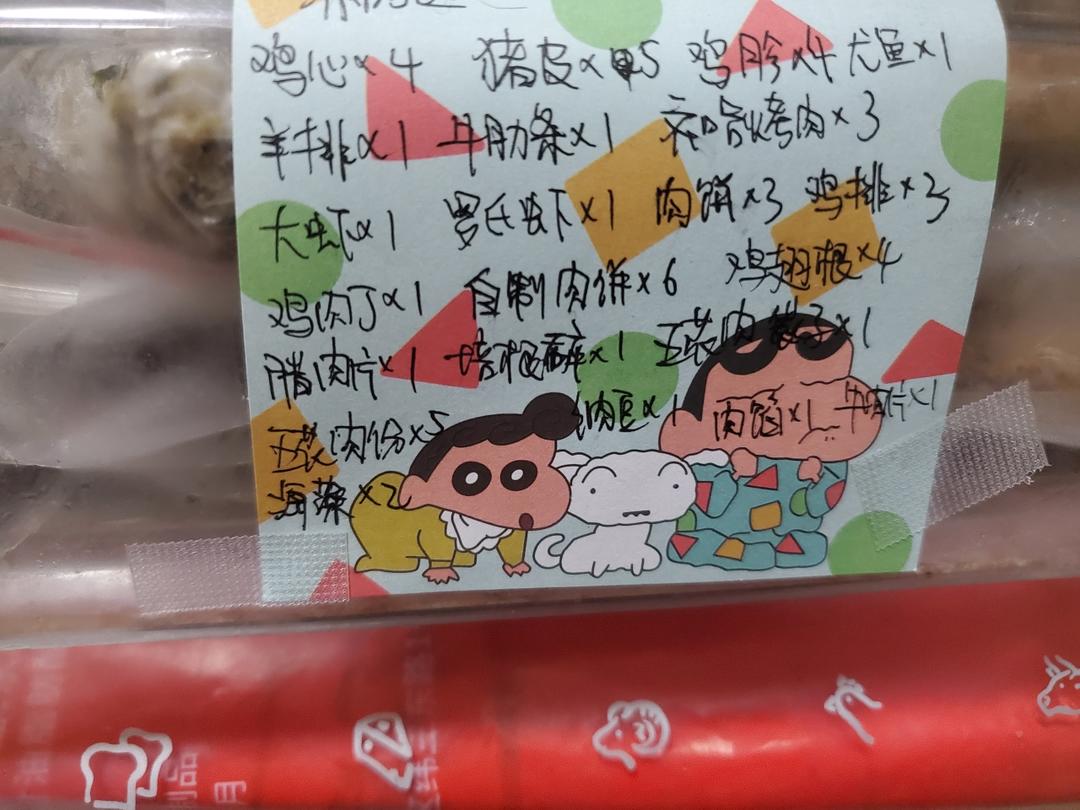 鸡心×4 猪皮×5 鸡胗×4 尤鱼×1
羊排×1 牛肋条×1 齐哈烤肉×3
大虾×1 罗氏虾×1 肉饼×3 鸡排×3
鸡肉丁×1 自制肉饼×6 鸡翅根×4
腊肉片×1 培根碎×1 五花肉饺子×1
五花肉份×5 肉包×1 肉馅×1 牛肉片×1
海藻×2
制品
月